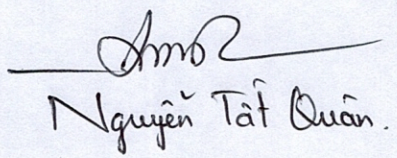 Nguyễn Tất Quân.